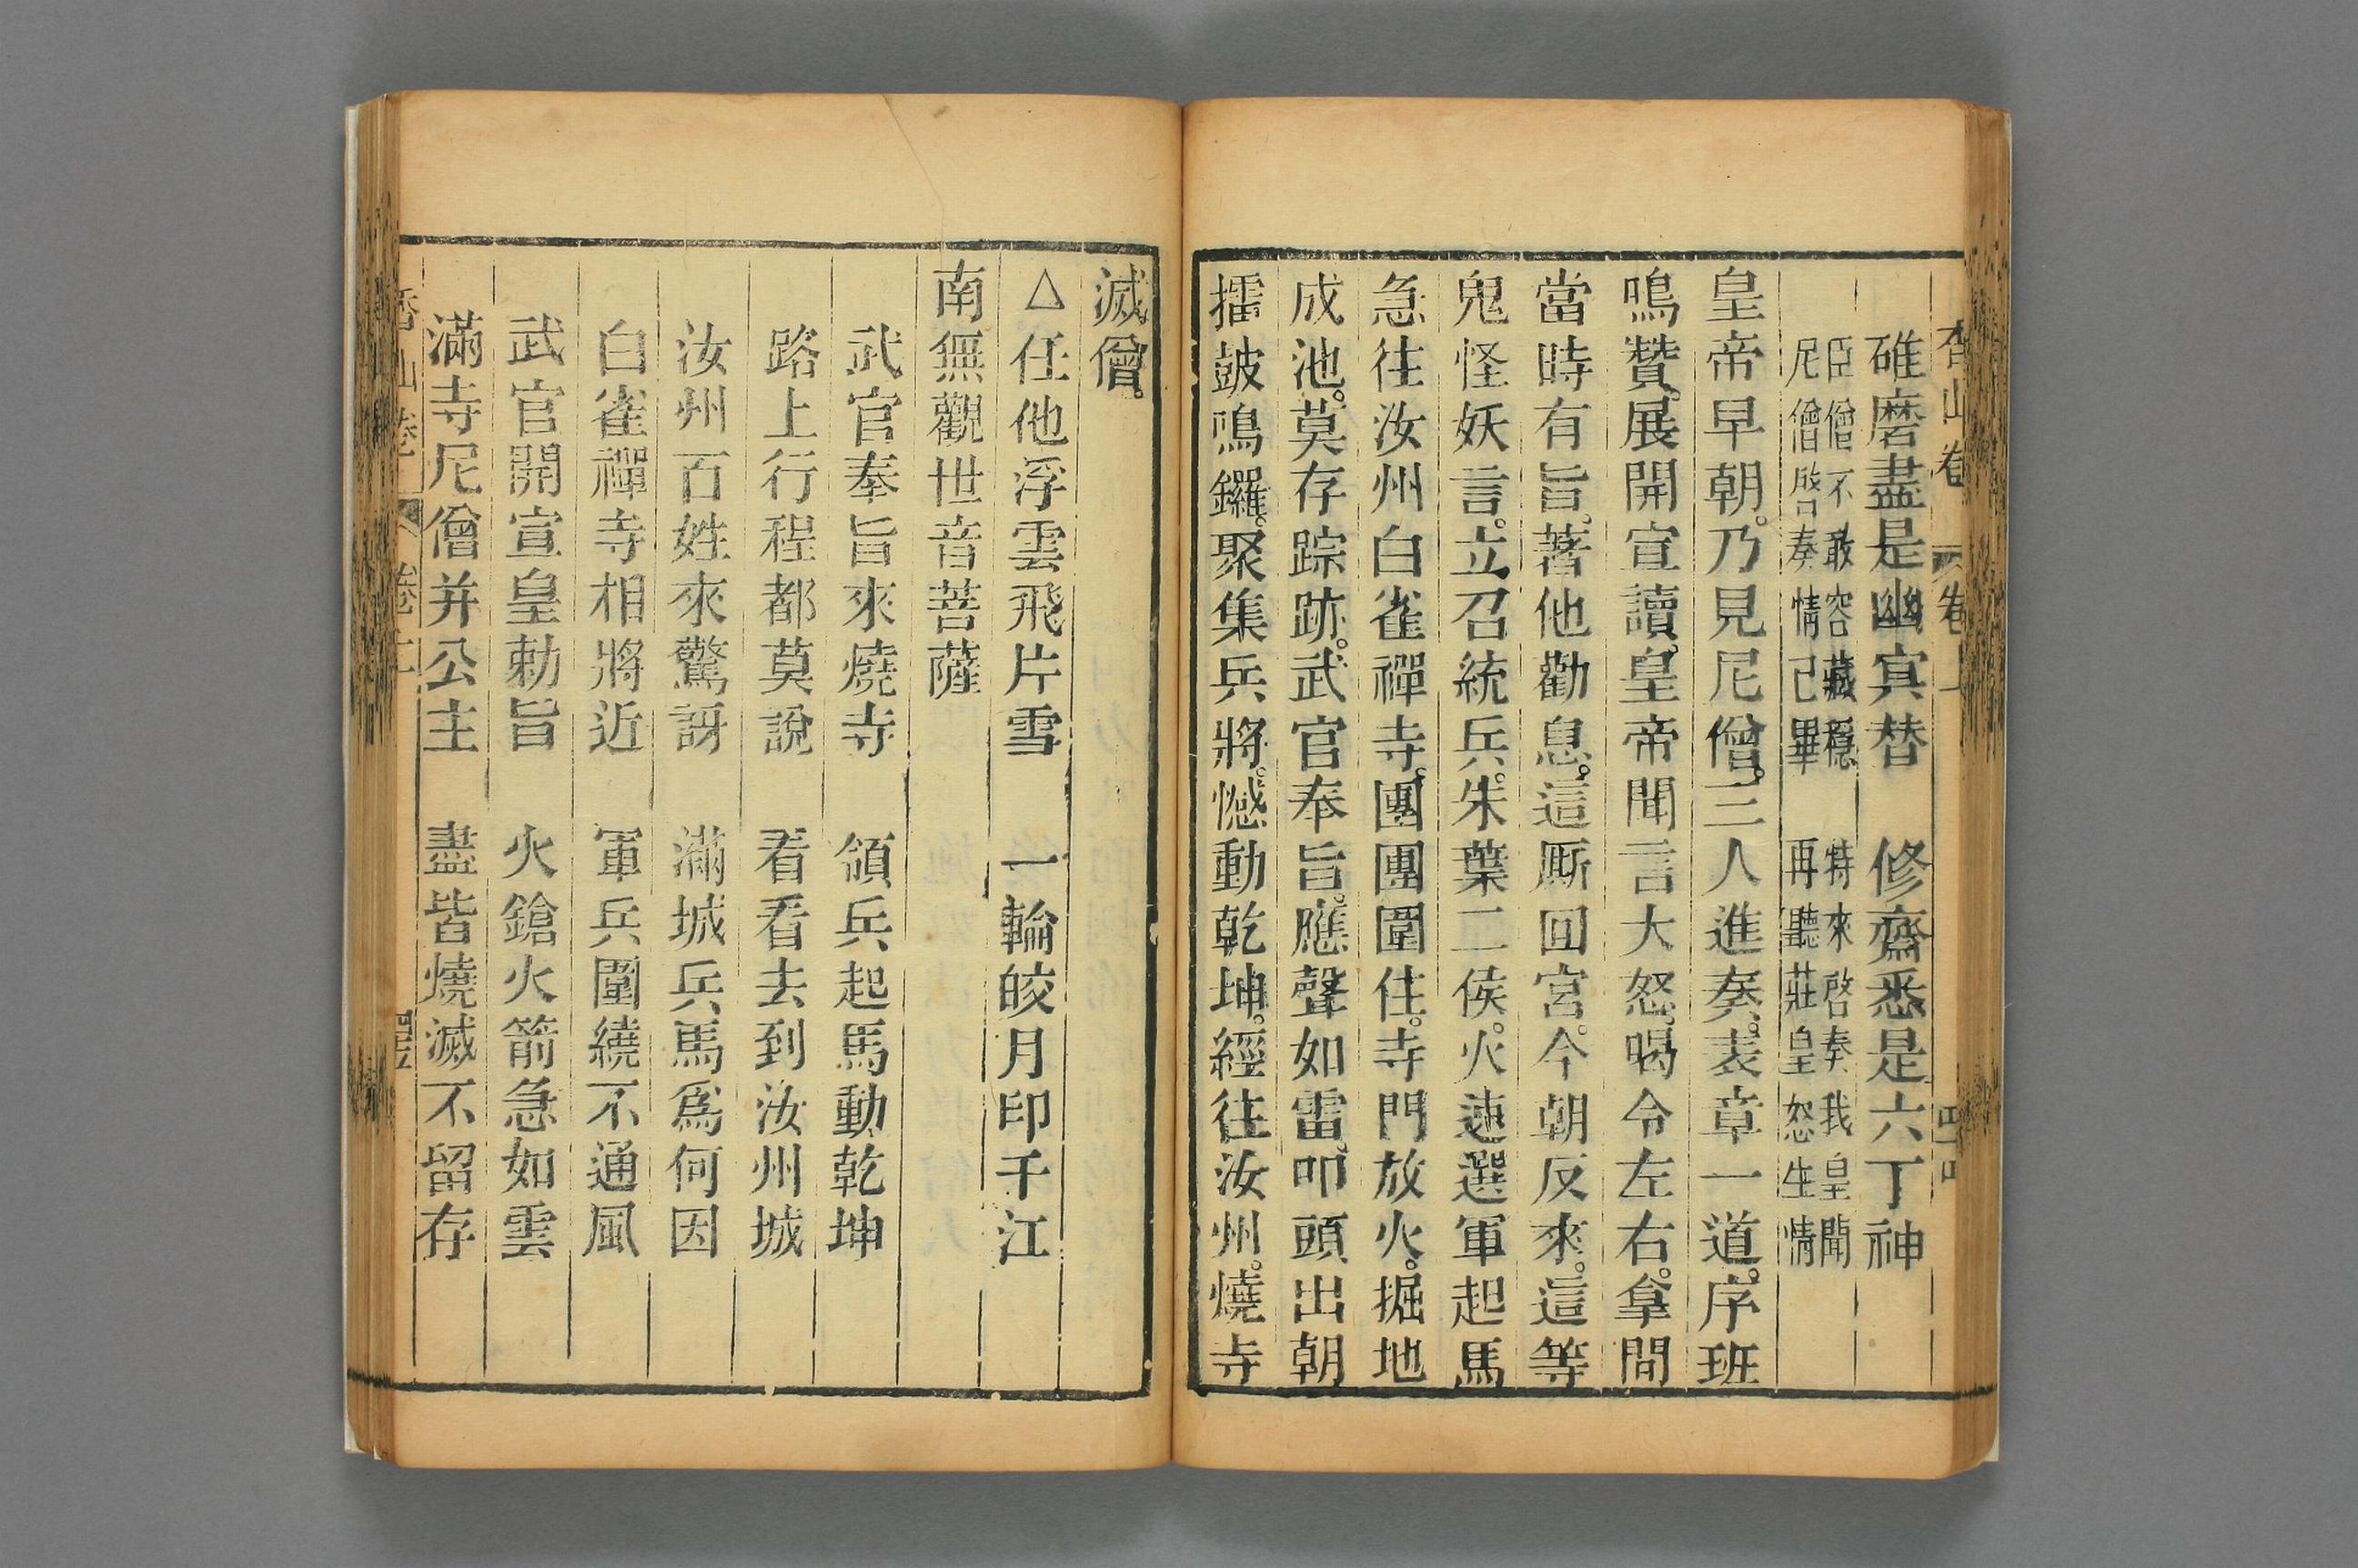 香山卷 卷上
碓磨盡是幽冥替 修齋悉是六丁神
臣僧不敢容藏穩 特來啓奏我皇聞
尼僧啓奏情已畢 再聽莊皇怒生情
皇帝早朝。乃見尼僧。三人進奏。表章一道。序班
鳴贊。展開宣讀。皇帝聞言大怒。喝令左右。拿問
當時有旨。著他勸息。這厮囬宮。今朝反來。這等
鬼怪妖言。立召統兵。朱葉二侯。火速選軍起馬
急往汝州白雀禪寺。團團圍住。寺門放火。掘地
成池。莫存踪跡。武官奉旨。應聲如雷。叩頭出朝
擂鼓鳴鑼。聚集兵將。憾動乾坤。經往汝州。燒寺
滅僧。
△任他浮雲飛片雪 一輪皎月印千江
南無觀世音菩薩
武官奉旨來燒寺 領兵起馬動乾坤
路上行程都莫說 看看去到汝州城
汝州百姓來驚訝 滿城兵馬爲何因
白雀禪寺相將近 軍兵圍繞不通風
武官開宣皇勅旨 火鎗火箭急如雲
滿寺尼僧并公主 盡皆燒滅不留存
香山卷 卷上